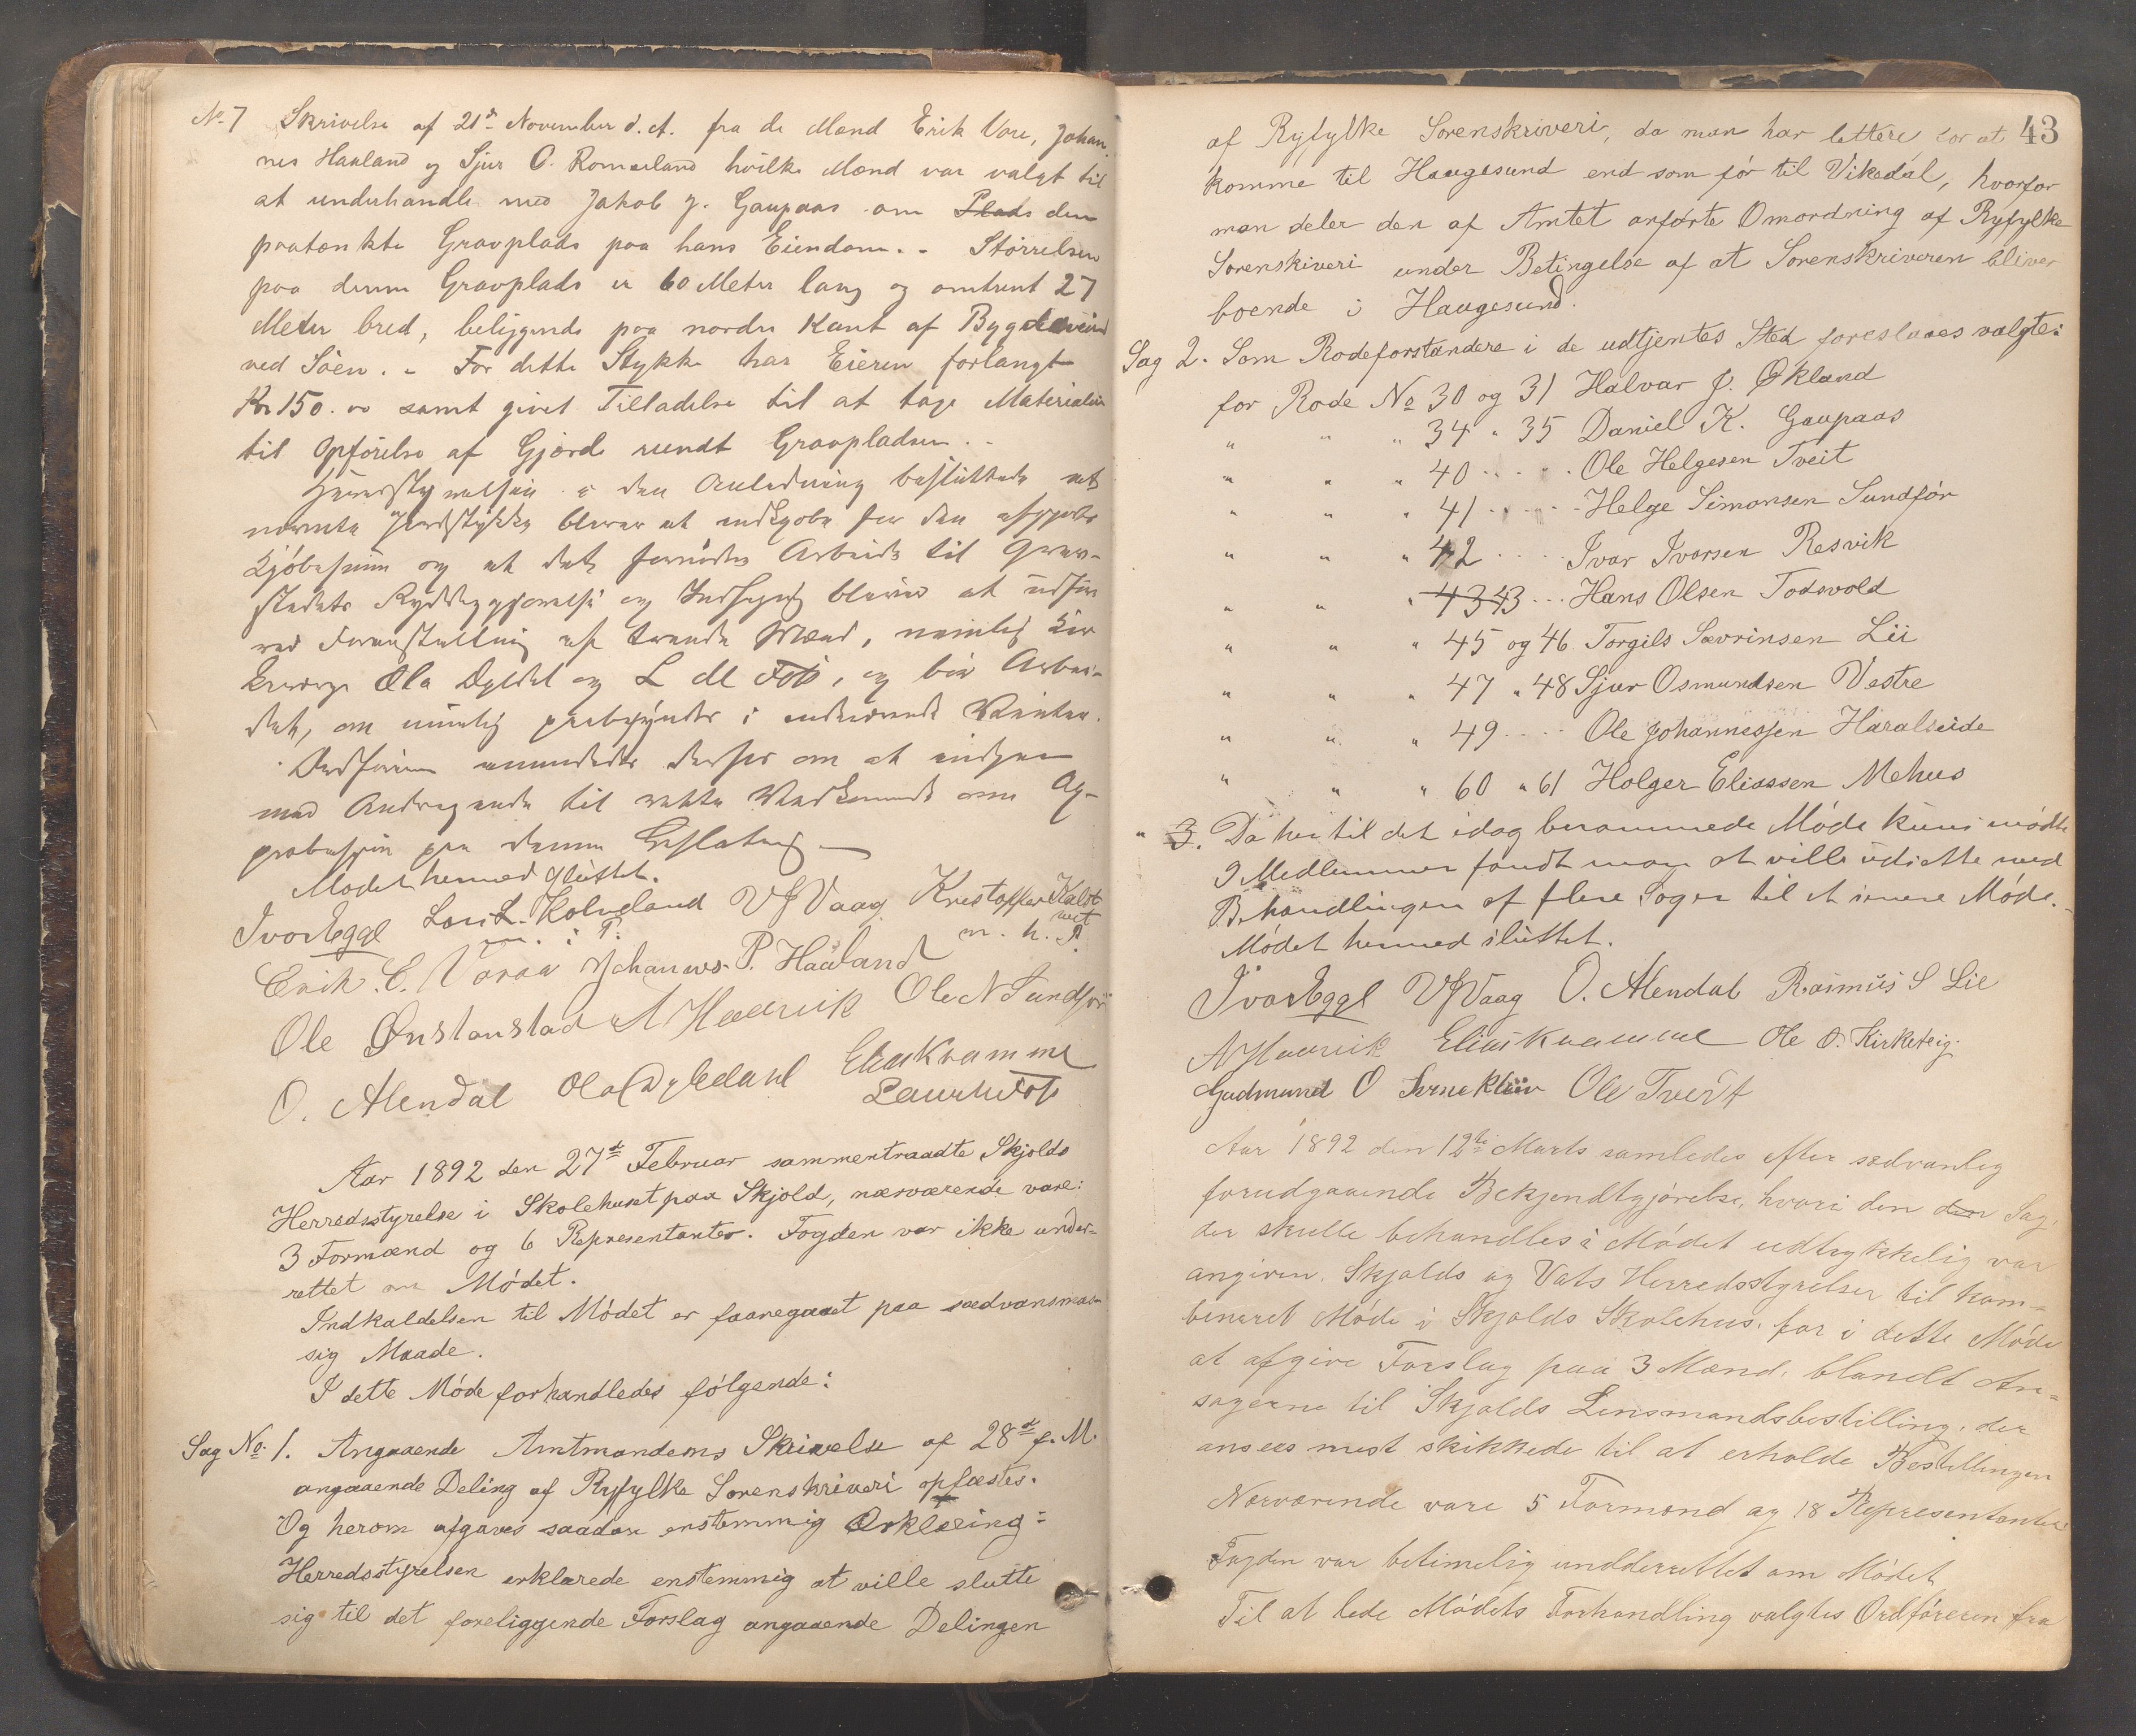 No 7 Skrivelse af 21de November d. A. fra de Mænd Erik Vore, Johan-
nes Haaland og Sjur O. Romseland hvilke Mænd var valgt til
at underhandle med Jakob J. Gaupaas om Plads den
paatænkte Gravplads paa hans Eiendom. - Størrelsen
paa denne Gravplads er 60 Meter lang og omtrent 27
Meter bred, beliggende paa nordre Kant af Bygdeveien
ved Söen. - For dette Stykke har Eieren forlangt
Kr 150.00 samt givet Tilladelse til at tage Materialier
til Opförelse af Gjærde rundt Gravpladsen. -
Herredsstyrelsen i den Anledning besluttede at
nævnte Jordstykke bliver at indkjøbe for den opgivne
Kjöbesum og at det fornødne Arbeide til Grav-
stedets Ryddiggjørelse og Indhegning bliver at udføre
ved Foranstaltning af tvende Mænd, nemlig Kir
keværge Ola Dyldal og L M Fos, og bör Arbei-
det, om muligt paabegyndes i indeværende Vinter.
Ordføreren anmodedes derfor om at indgaa
med Andragende til rette Vedkommende om Ap-
probation paa denne Beslutning
Mødet hermed sluttet.
Ivar Eggl Lars L. Kolveland V J Vaag Kristoffer Kalt
veit
m. i P. m. h. P.
Erik. E. Voraa Johannes P. Haaland
Ole Ønstanstad A Haavik Ole N Sundför
O. Alendal Ola Dyldahl Elias Kvamme
Laur M Fos
Aar 1892 den 27de Februar sammentraadte Skjolds
Herredsstyrelse i Skolehuset paa Skjold, nærværende vare:
3 Formænd og 6 Representanter. Fogden var ikke under-
rettet om Mødet.
Indkaldelsen til Mødet er foaregaaet paa sædvansmæs-
sig Maade.
I dette Møde forhandledes følgende:
Sag No. 1. Angaaende Amtmandens Skrivelse af 28de f. M.
angaaende Deling af Ryfylke Sorenskriveri oplæstes.
Og herom afgaves saadan enstemmig Erklæring:
Herredsstyrelsen erklærede enstemmig at ville slutte
sig til det foreliggende Forslag angaaende Delingen
43
af Ryfylke Sorenskriveri, da man har lettere for at
komme til Haugesund end som før til Vikedal, hvorfor
man deler den af Amtet anførte Omordning af Ryfylke
Sorenskiveri under Betingelse af at Sorenskriveren bliver
boende i Haugesund.
Sag 2. Som Rodeforstandere i de udtjentes Sted foreslaaes valgte:
for Rode No 30 og 31 Halvar J. Økland
" " " 34 " 35 Daniel K. Gaupaas
" " " 40 . . . . Ole Helgesen Tveit
" " " 41 . . . . Helge Simonsen Sundför
" " " 42 . . . . Ivar Ivarsen Resvik
" " " 43 43 . . . Hans Olsen Todsvold
" " " 45 og 46 Torgils Sævrinsen Lii
" " " 47 " 48 Sjur Osmundsen Vestre
" " " 49 . . . . Ole Johannessen Haraldseide
" " " 60 " 61 Holger Eliassen Mehus
" 3. Da her til det idag berammede Møde kuns mødte
9 Medlemmer fandt man at ville udsætte med
Behandlingen af flere Sager til et senere Møde.
Mödet hermed sluttet.
Ivar Eggl V J Vaag O. Alendal Rasmus S Lie
A Haavik Elias Kvamme Ole O. Kirketeig.
Gudmund O Ole Tveit
Aar 1892 den 12te Marts samledes efter sædvanlig
forudgaaende Bekjendtgjørelse, hvori den den Sag,
der skulle behandles i Mødet udtrykkelig var
angiven. Skjolds og Vats Herredsstyrelser til kom-
beneret Møde i Skjolds Skolehus, for i dette Møde
at afgive Forslag paa 3 Mænd, blandt An-
søgerne til Skjolds Lensmandsbestilling, der
ansees mest skikkede til at erholde Bestillingen
Nærværende vare 5 Formænd og 18 Representanter
Fogden var betimelig undderrettet om Mødet
Til at lede Mødets Forhandling valgtes Ordføreren fra